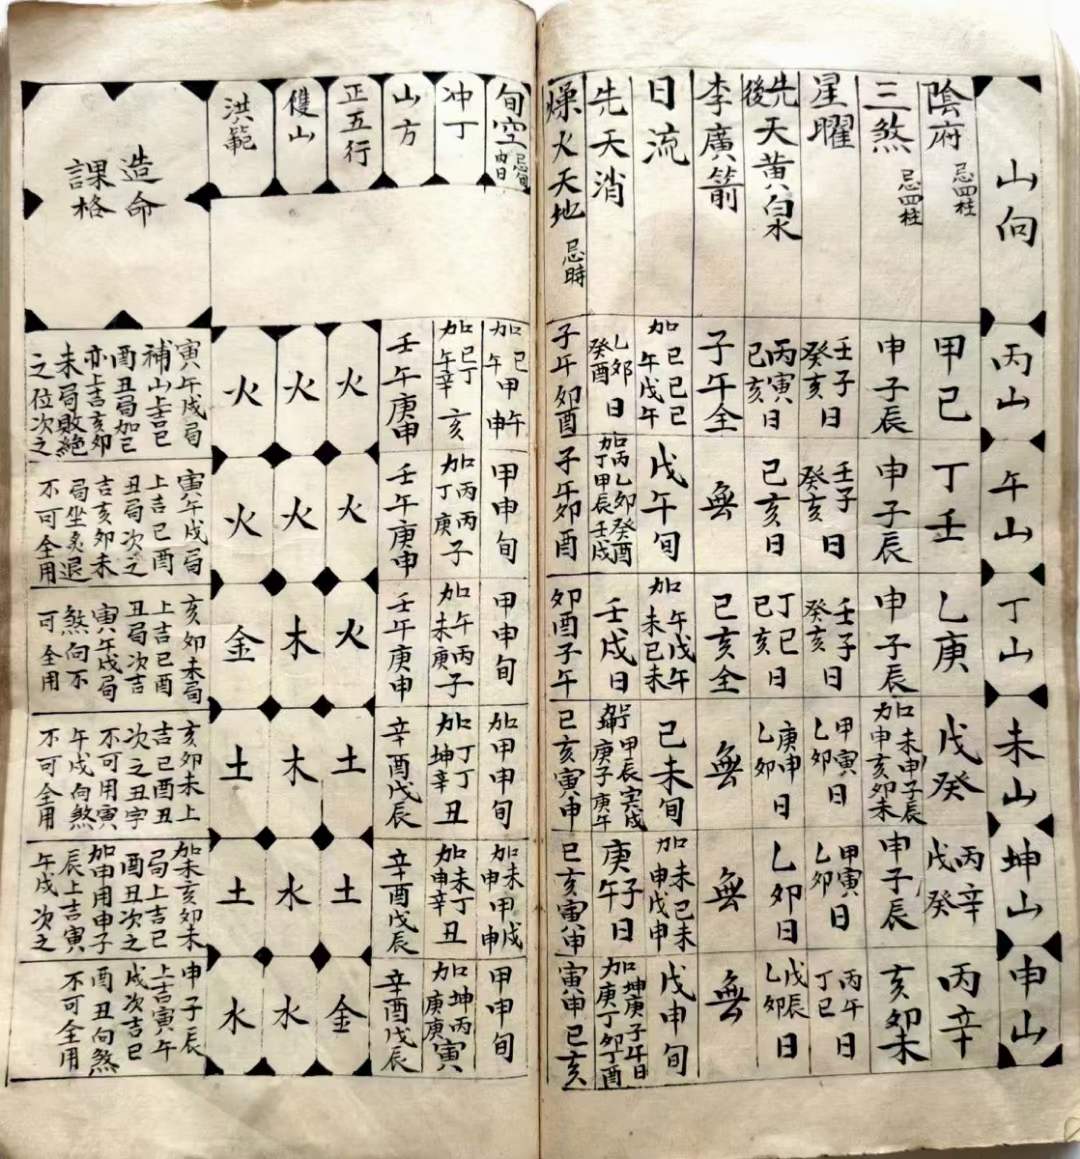 山向
陰府 忌四柱
三煞 忌四柱
星曜
先後天黃泉水
李廣箭
日流
先天消
燥火天地 忌時
旬空
冲丁
山方
正五行
雙山
洪範
造命
課格
丙山
甲己
申子辰
壬子
癸亥日
丙寅
己亥日
子午全
加己巳
午戊午
乙卯
癸酉日
子午卯酉
加巳甲午
午申
加巳丁
午辛亥
壬午庚申
火
火
火
寅午戌局
補山上吉巳
酉丑局加巳
亦上吉亥卯
未局敗絕
之位次之
午山
丁壬
申子辰
壬子
癸亥日
己亥日
無
戊午旬
加丙乙卯癸酉
丁甲辰壬戌
子午卯酉
甲申旬
加丙丙
丁庚子
壬午庚申
火
火
火
寅午戌局
上吉巳酉
丑局次之
吉亥卯未
局坐炙退
不可全用
丁山
乙庚
申子辰
壬子
癸亥日
丁巳
己亥日
己亥全
加午戊午
未己未
壬戌日
卯酉子午
甲申旬
加午丙
未庚子
壬午庚申
火
木
金
亥卯未局
上吉巳酉
丑局次吉
寅午戌局
煞向不
可全用
未山
戊癸
加未申子辰
加申亥卯未
甲寅
乙卯日
庚申
乙卯日
無
己未旬
甲辰寅戌
庚子庚午
巳亥寅申
加甲申旬
加丁丁
坤辛丑
辛酉戊辰
土
木
土
亥卯未上
吉巳酉丑
次之丑字
不可用寅
午戌向煞
不可全用
坤山
丙辛
戊癸
申子辰
甲寅
乙卯日
乙卯日
無
加未己未
申戊申
庚子
午日
巳亥寅申
加未甲戌
申申
加未丁
申辛丑
辛酉戊辰
土
水
土
加未亥卯未
局上吉巳
酉丑次之
加申用申子
辰上吉寅
午戌次之
申山
丙辛
亥卯未
丙午
丁巳日
戊辰
乙卯日
無
戊申旬
加坤庚子午日
加庚丁卯丁酉
寅申巳亥
甲申旬
加坤丙
庚庚寅
辛酉戊辰
金
水
水
申子辰
上吉寅午
戌次吉巳
酉丑向煞
不可全用